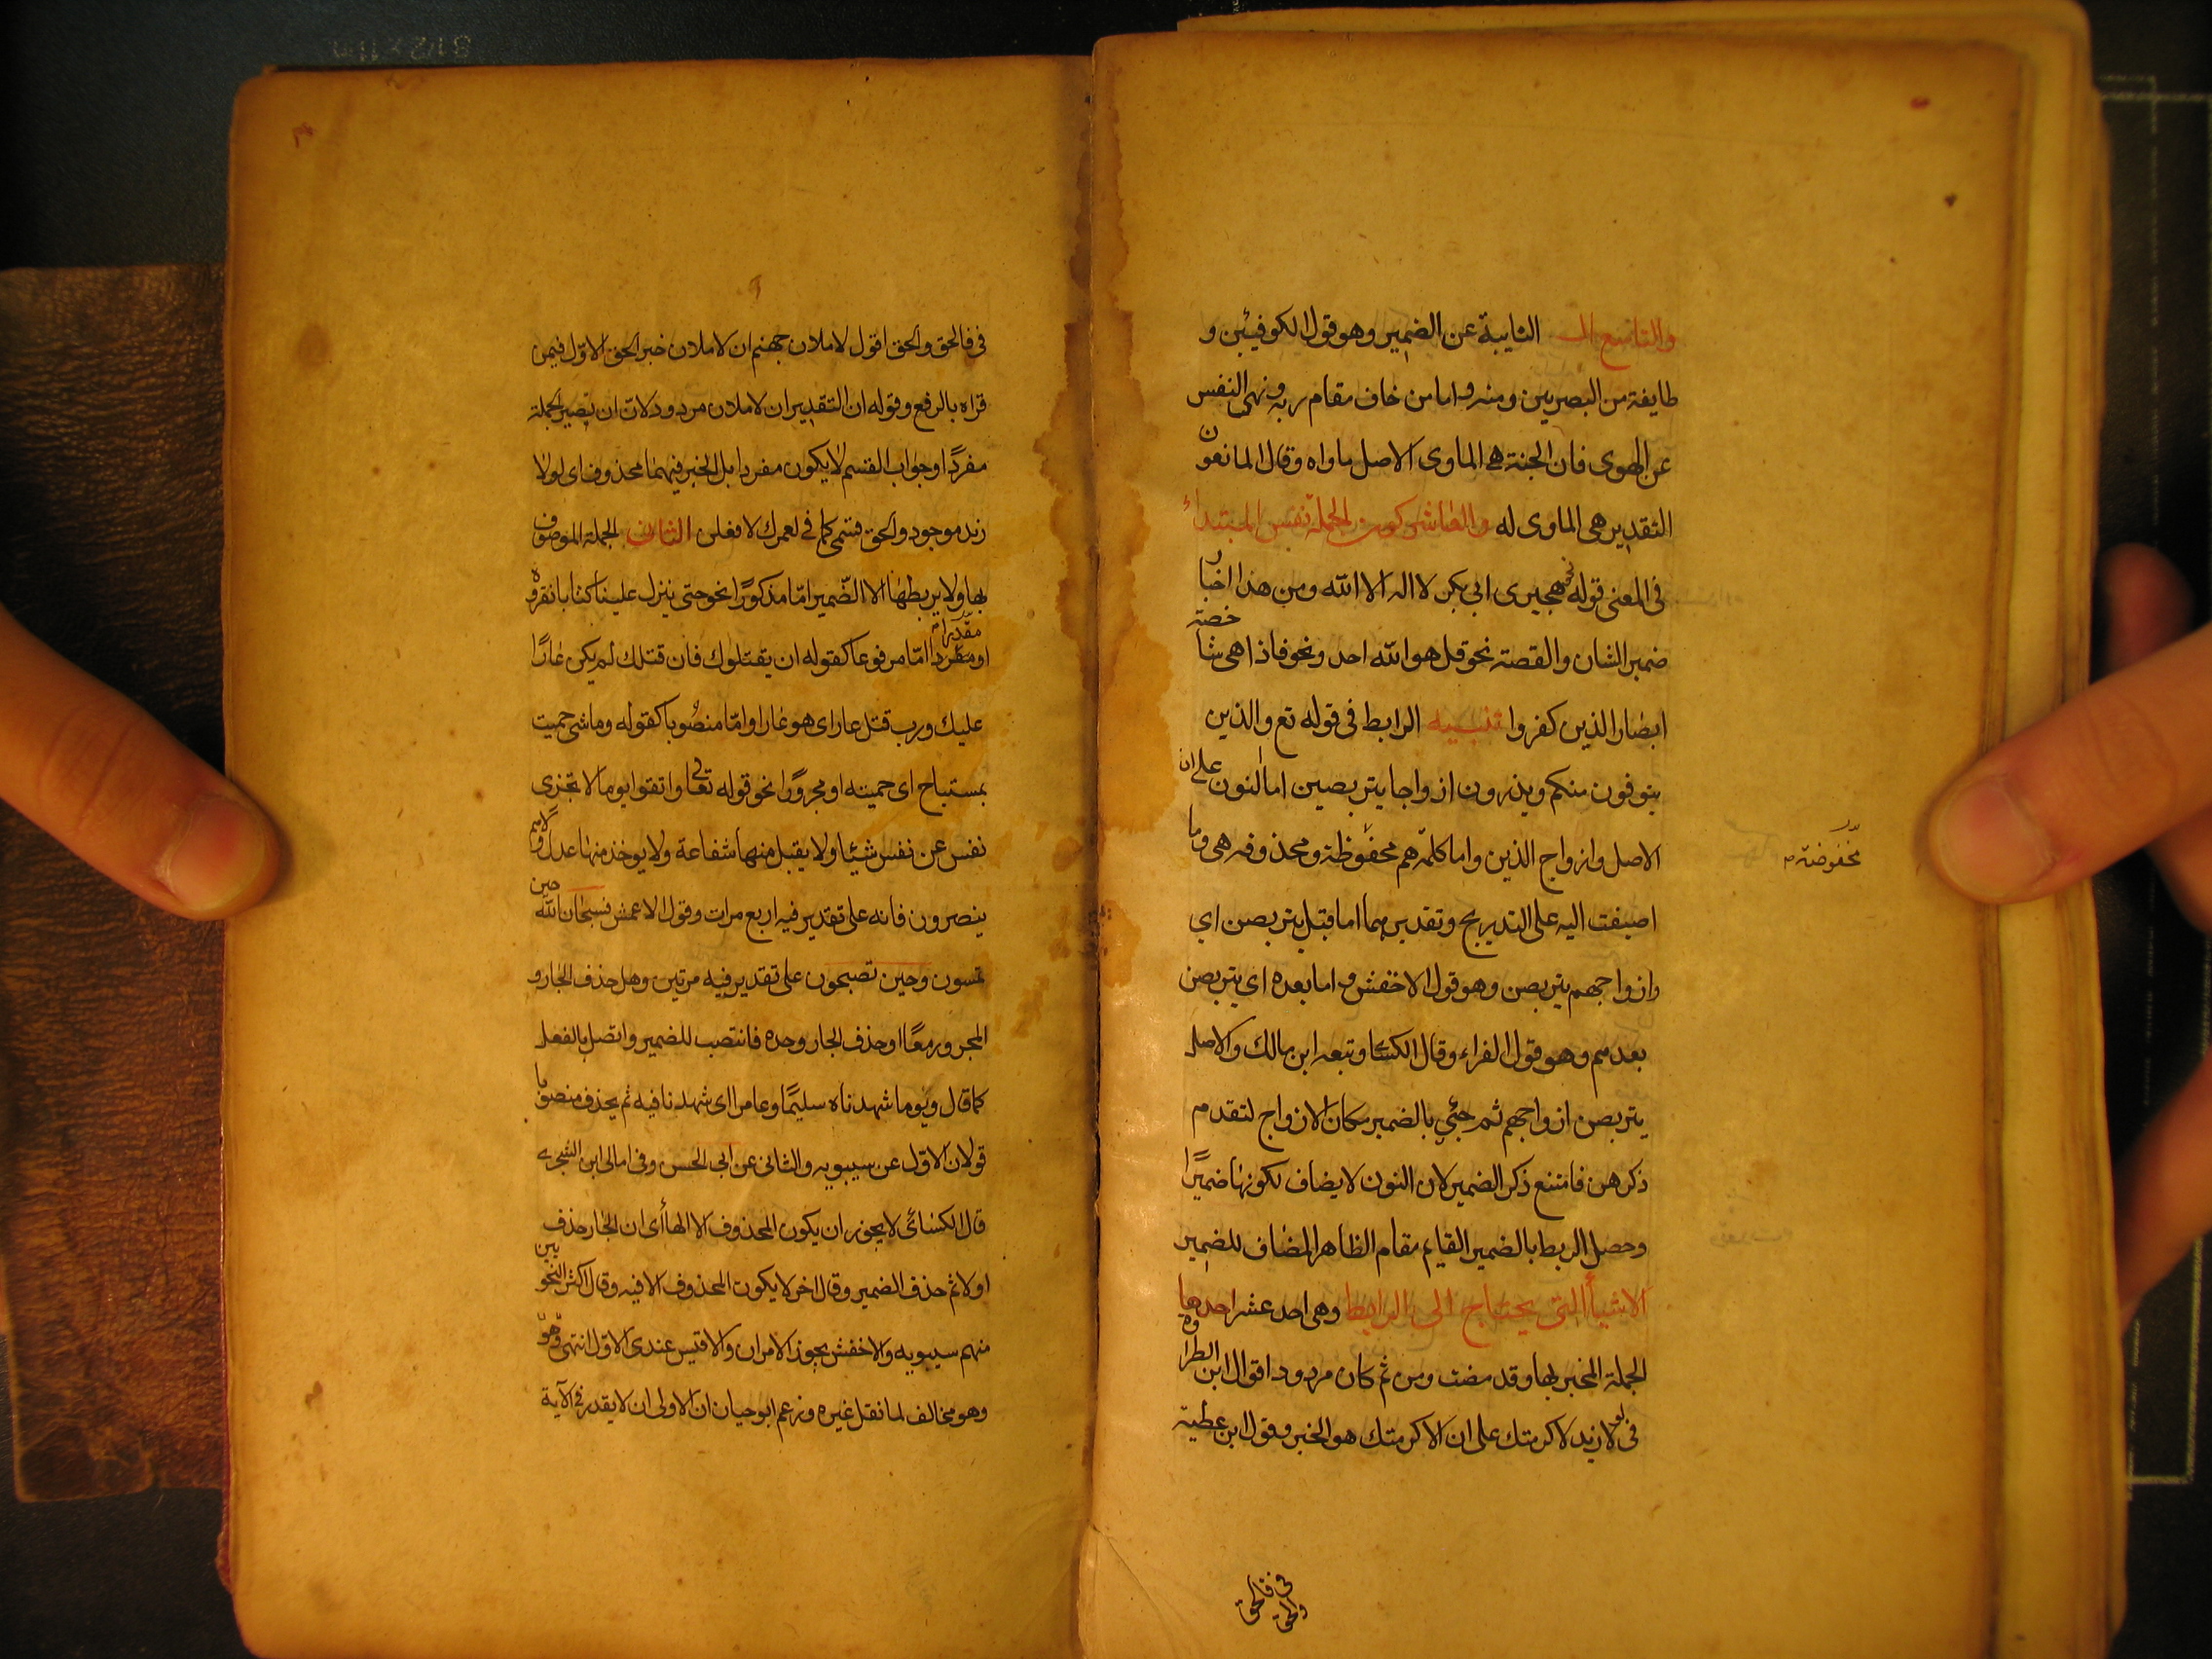 والتاسع ال النايبة عن الضمير وهو قول الكوفيين و
طايفة من البصريين ومنه واما من خاف مقام ربه ونهى النفس
عن الهوى فان الجنة هى الماوى الاصل ماواه وقال المانعون
التقدير هى الماوى له والعاشر كون الجملة نفس المبتداء
فى المعنى نحو قوله هجيرى ابى بكر لا اله الا الله ومن هذا اخبار
ضمير الشان والقصة نحو قل هو الله احد ونحو فاذا هى شاخصة
ابصار الذين كفروا تنبيه الرابط فى قوله تع والذين
يتوفون منكم ويذرون ازواجا يتربصن اما النون على ان
الاصل وازواج الذين واما كلمة هم محفوظة ومحذوفة هى وما
مخفوضة
اضيفت اليه على التدريج وتقديرهما اما قبل يتربصن اي
وازواجهم يتربصن وهو قول الاخفش واما بعده اى يتربصن
بعدهم وهو قول الفراء وقال الكسائ وتبعه ابن مالك والاصل
يتربصن ازواجهم ثم جئي بالضمير مكان الازواج لتقدم
ذكرهن فامتنع ذكر الضمير لان النون لا يضاف لكونها ضميرًا
وحصل الربط بالضمير القايم مقام الظاهر المضاف للضمير
الاشيأ التى يحتاج الى الرابط وهى احد عشر احدها
الجملة المخبر بها وقد مضت ومن ثم كان مردودا قول ابن الطراوة
فى لولا زيد لاكرمتك على ان لاكرمتك هو الخبر وقول ابن عطية
فى فالحق والحق
فى فالحق والحق اقول لاملان جهنم ان لاملان خبر الحق الاول فيمن
قراه بالرفع وقوله ان التقدير ان لاملان مردود لان ان تصير الجملة
مفردًا وجواب القسم لا يكون مفردا بل الخبر فيهما محذوف اى لولا
زيد موجود والحق قسمى كما فى لعمرك لافعلن الثانى الجملة الموصوف
بها ولا يربطها الا الضمير اما مذكورًا نحو حتى ننزل علينا كتابا نقروه
او مقدرا اما مرفوعا كقوله ان يقتلوك فان قتلك لم يكن عارًا
عليك ورب قتل عار اى هو عار او اما منصوبا كقوله وما شئ حميت
بمستباح اى حميته او مجرورًا نحو قوله تعالى واتقوا يوما لا تجزى
نفس عن نفس شيئا ولا يقبل منها شفاعة ولا يوخذ منها عدل ولاهم
ينصرون فانه على تقدير فيه اربع مرات وقول الاعمش فسبحان الله حين
تمسون وحين تصبحون على تقدير فيه مرتين وهل حذف الجار و
المجرور معًا او حذف الجار وحده فانتصب للضمير واتصل بالفعل
كما قال ويوما شهدناه سليمًا وعامرا اى شهدنا فيه ثم يحذف منصوبا
قولان الاول عن سيبويه والثانى عن ابى الحسن وفى امالى ابن الشجرى
قال الكسائى لا يجوز ان يكون المحذوف الا الها أى ان الجار حذف
اولا ثم حذف الضمير وقال اخر لا يكون المحذوف الا فيه وقال اكثر النحويين
منهم سيبويه والاخفش يجوز الامران والاقيس عندى الاول انتهى وهو
وهو مخالف لما نقل غيره وزعم ابو حيان ان الاولى ان لا يقدر فى الآية